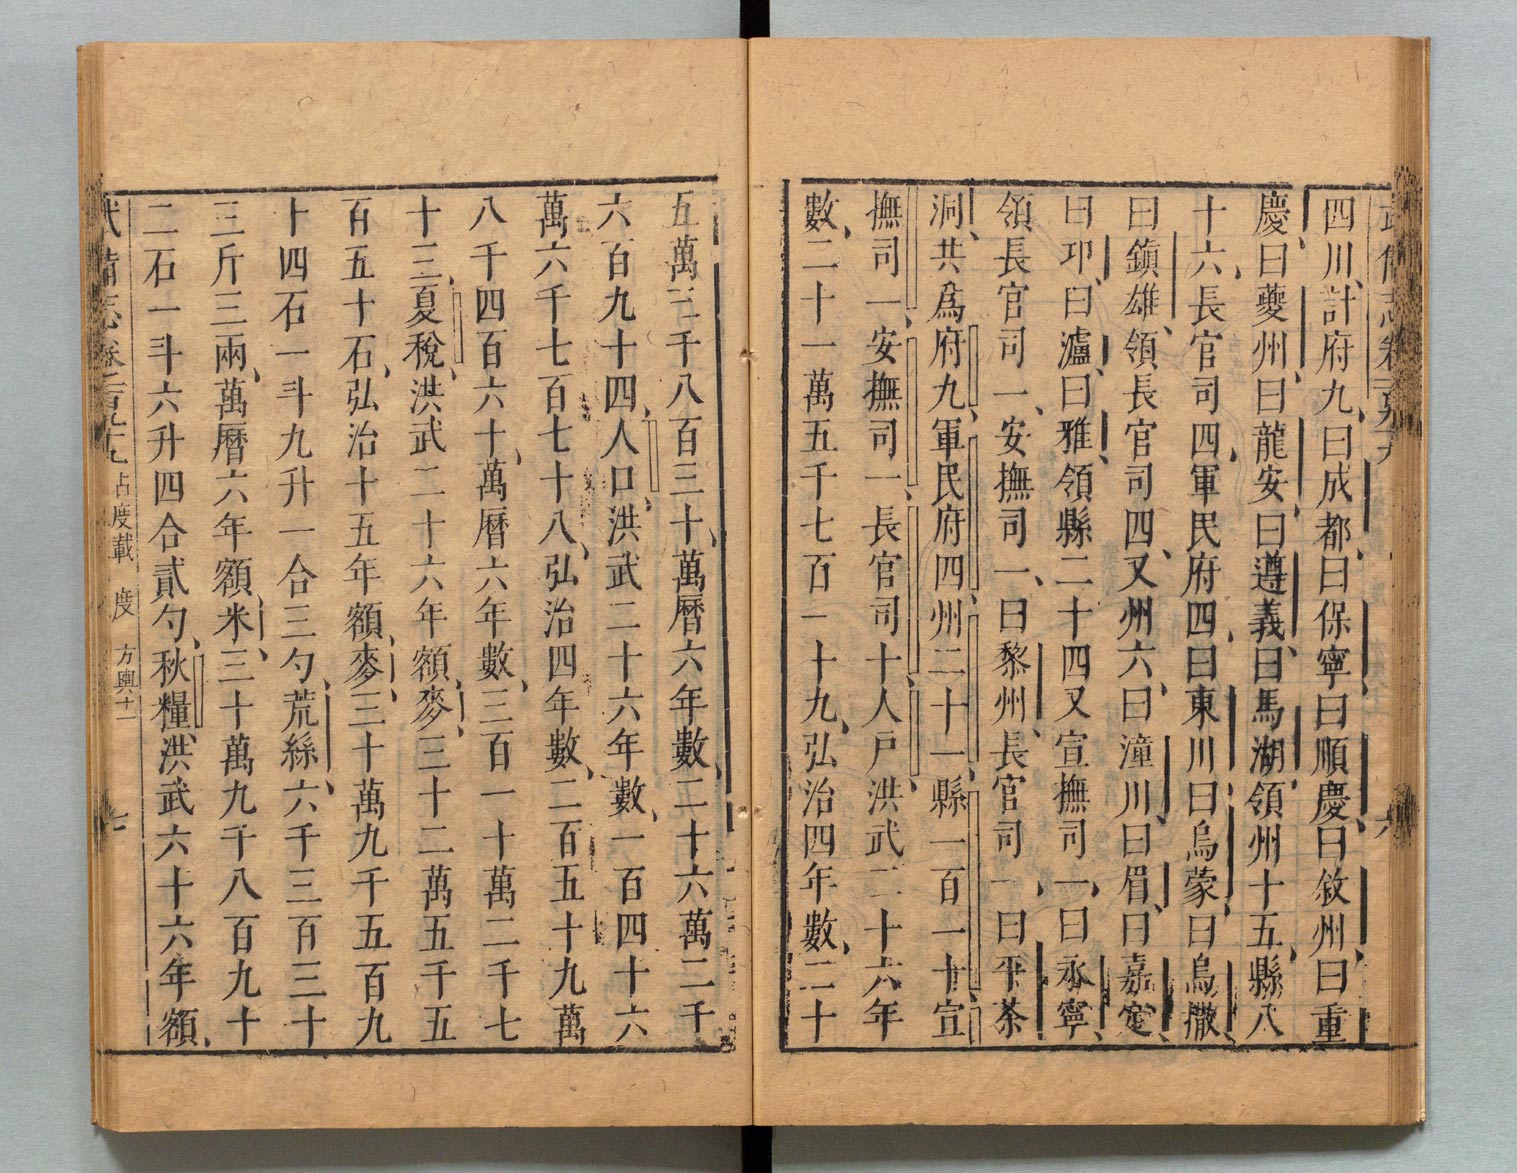 四川、計府九、曰成都、曰保寧曰順慶、曰敘州、曰重
慶、曰夔州、曰龍安、曰遵義、曰馬湖、領州十五、縣八
十六、長官司四、軍民府四、曰東川曰烏蒙、曰烏撒、
曰鎮雄、領長官司四、又州六、曰潼川、曰眉、曰嘉定、
曰邛、曰瀘、曰雅、領縣二十四又宣撫司一、曰永寧、
領長官司一、安撫司一、曰黎州、長官司一、曰平茶
洞、共爲府九、軍民府四、州二十一、縣一百一十、宣
撫司一、安撫司一、長官司十人戸洪武二十六年
數、二十一萬五千七百一十九、弘治四年數、二十
五萬三千八百三十、萬曆六年數、二十六萬二千
六百九十四、人口、洪武二十六年數、一百四十六
萬六千七百七十八、弘治四年數、二百五十九萬
八千四百六十、萬曆六年數、三百一十萬二千七
十三、夏稅、洪武二十六年額、麥、三十二萬五千五
百五十石、弘治十五年額、麥、三十萬九千五百九
十四石一斗九升一合三勺、荒絲、六千三百三十
三斤三兩、萬曆六年額、米、三十萬九千八百九十
二石一斗六升四合貳勺、秋糧、洪武六十六年額、
武備志 占度載 度 方輿十一 七